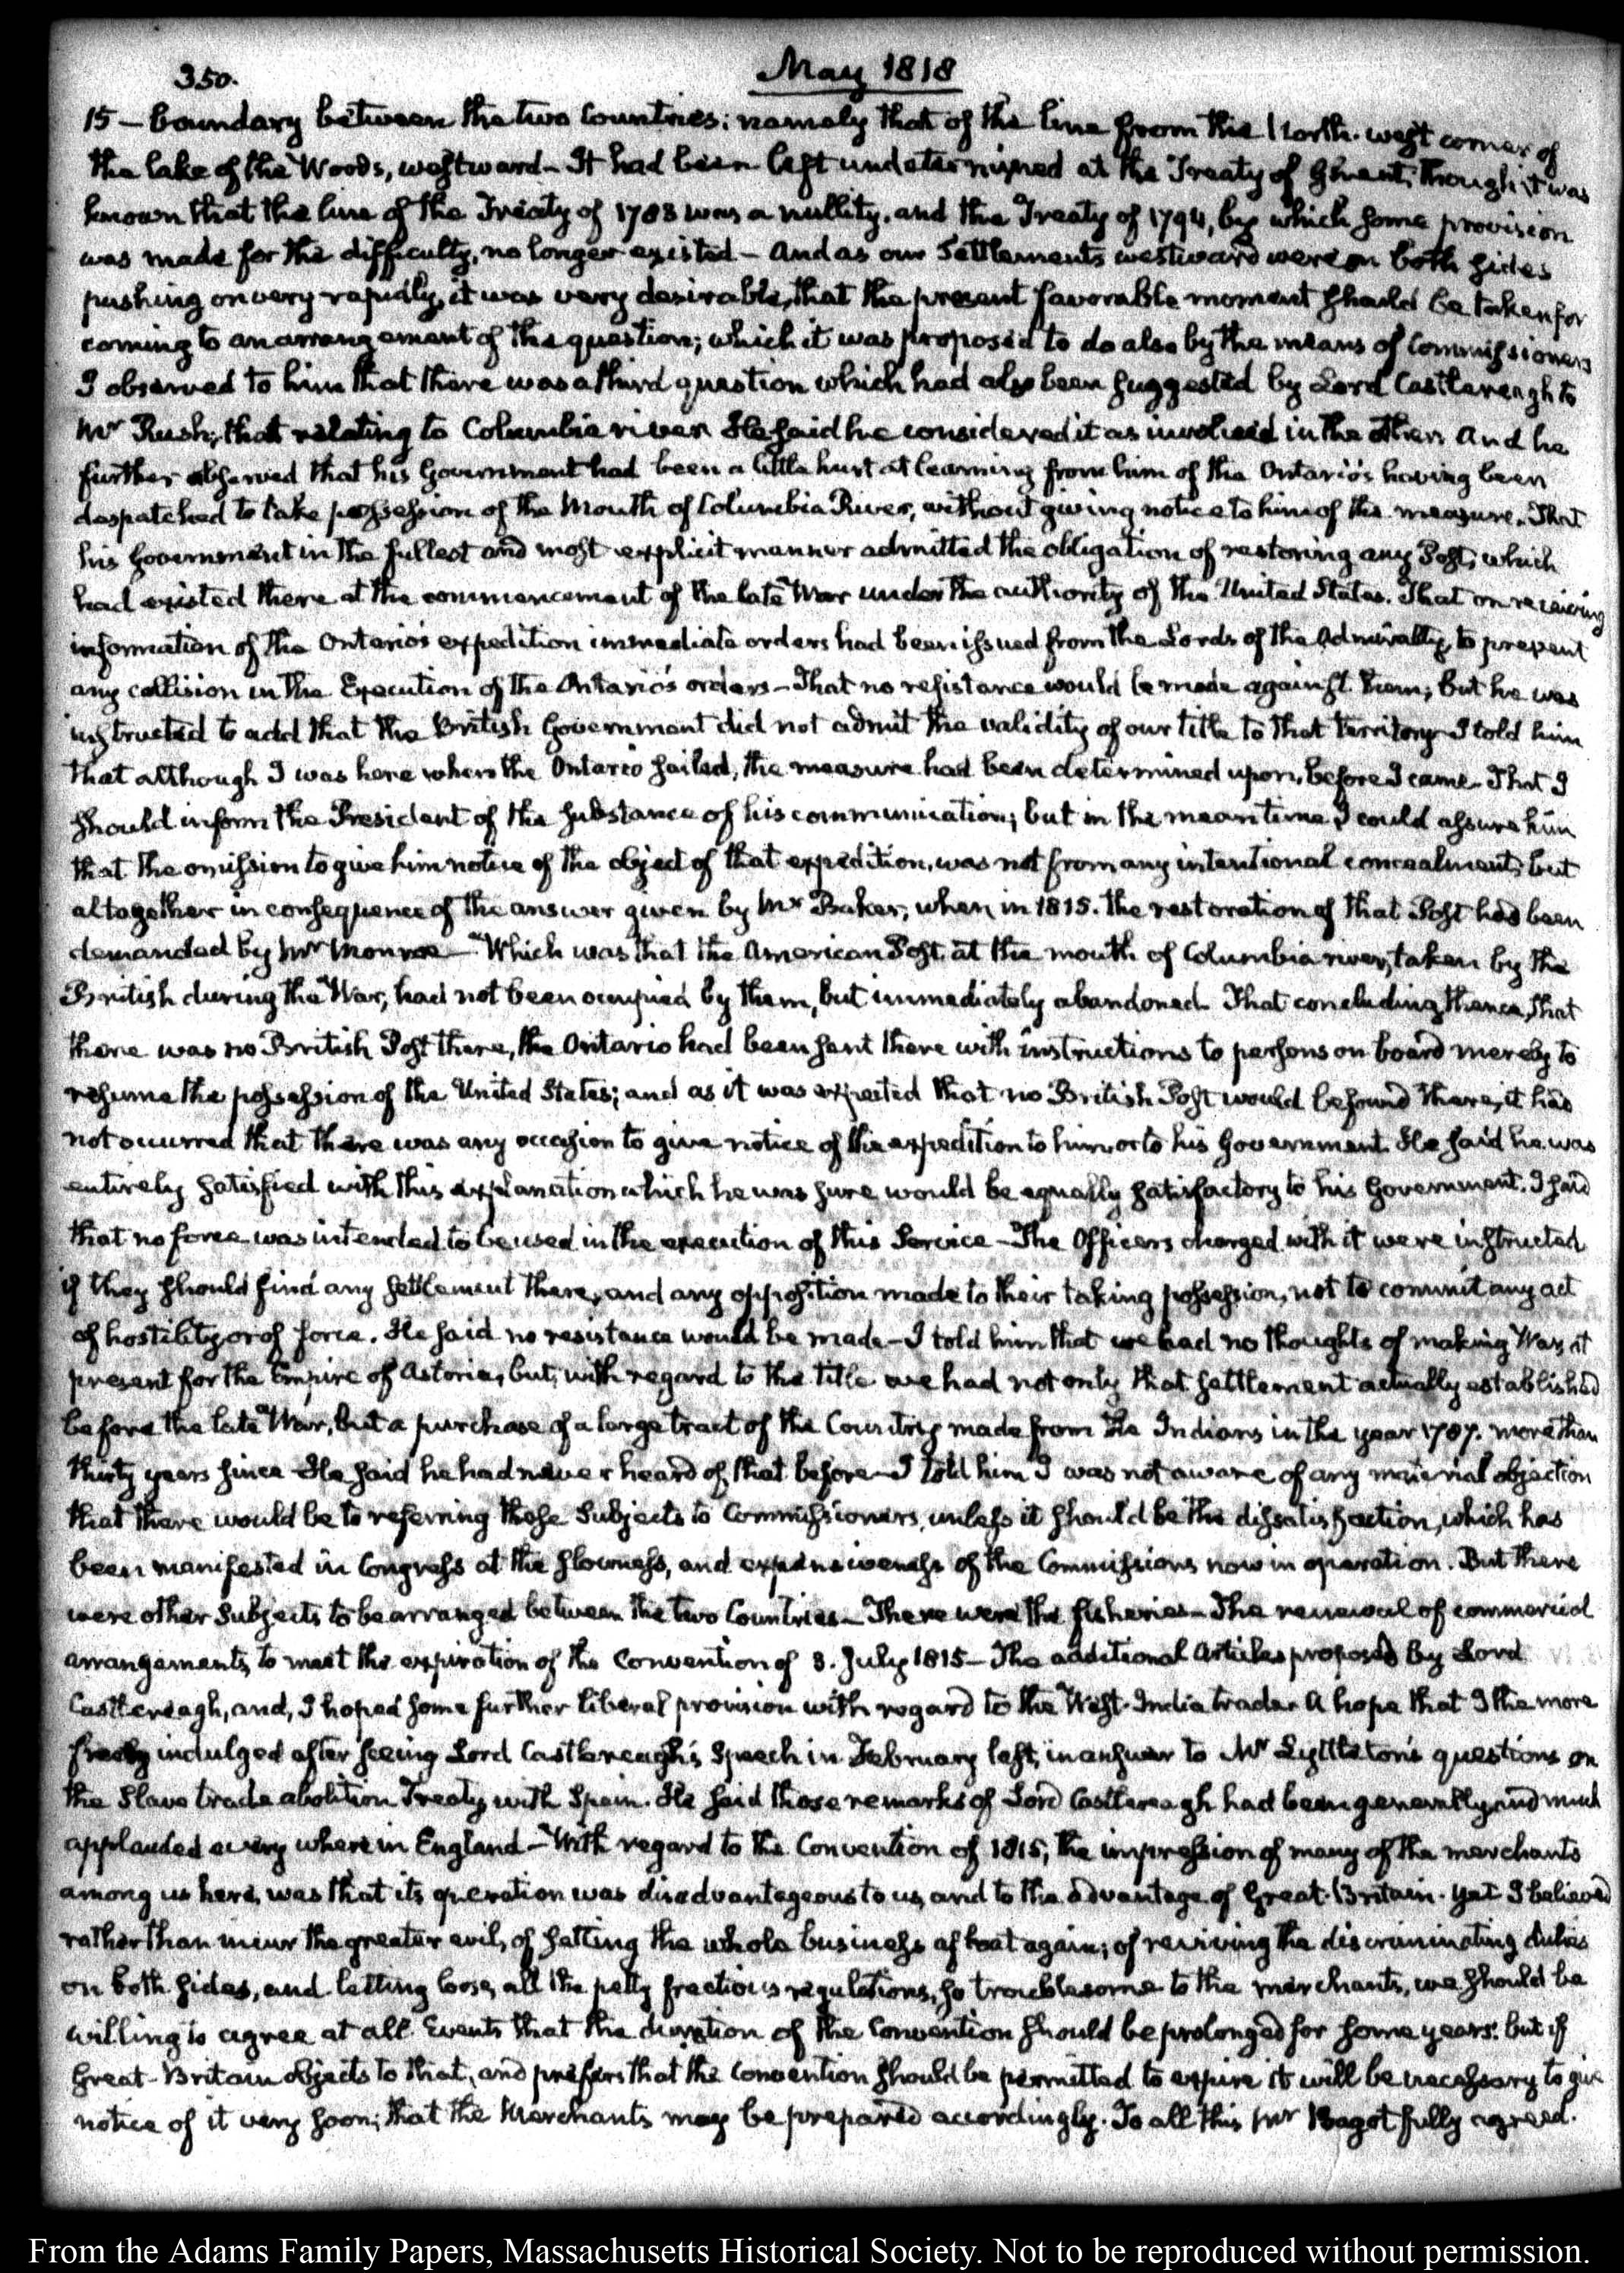 350.
May 1818
15 — boundary between the two Countries: namely that of the line from the North-west corner of
the lake of the Woods, westward — It had been left undetermined at the Treaty of Ghent, though it was
known that the line of the Treaty of 1783 was a nullity, and the Treaty of 1794, by which some provision
was made for the difficulty, no longer existed — And as our Settlements westward were on both sides
pushing on very rapidly, it was very desirable, that the present favorable moment should be taken for
coming to an arrangement of the question; which it was proposed to do also by the means of Commissioners
I observed to him that there was a third question which had also been suggested by Lord Castlereagh to
Mr Rush; that relating to Columbia river. He said he considered it as involved in the other. And he
further observed that his Government had been a little hurt at learning from him of the Ontario's having been
despatched to take possession of the Mouth of Columbia River, without giving notice to him of the measure. That
his Government in the fullest and most explicit manner admitted the obligation of restoring any Post, which
had existed there at the commencement of the late War under the authority of the United States. That on receiving
information of the Ontario's expedition immediate orders had been issued from the Lords of the Admiralty, to prevent
any collision in the Execution of the Ontario's orders — That no resistance would be made against them; but he was
instructed to add that the British Government did not admit the validity of our title to that territory — I told him
that although I was here when the Ontario sailed, the measure had been determined upon, before I came — That I
should inform the President of the substance of his communication; but in the mean time I could assure him
that the omission to give him notice of the object of that expedition, was not from any intentional concealment, but
altogether in consequence of the answer given by Mr Baker, when in 1815. the restoration of that Post had been
demanded by Mr Monroe — Which was that the American Post at the mouth of Columbia river, taken by the
British during the War, had not been occupied by them, but immediately abandoned. That concluding thence, that
there was no British Post there, the Ontario had been sent there with instructions to persons on board merely to
resume the possession of the United States; and as it was expected that no British Post would be found there, it had
not occurred that there was any occasion to give notice of the expedition to him or to his Government. He said he was
entirely satisfied with this explanation which he was sure would be equally satisfactory to his Government. I said
that no force was intended to be used in the execution of this Service — The Officers charged with it were instructed
if they should find any settlement there, and any opposition made to their taking possession, not to commit any act
of hostility or of force. He said no resistance would be made — I told him that we had no thoughts of making War, at
present for the Empire of Astoria, but, with regard to the title we had not only that settlement actually established
before the late War, but a purchase of a large tract of the Country made from the Indians in the year 1787. more than
thirty years since — He said he had never heard of that before — I told him I was not aware of any material objection
that there would be to referring those Subjects to Commissioners, unless it should be the dissatisfaction, which has
been manifested in Congress at the slowness, and expensiveness of the Commissions now in operation. But there
were other Subjects to be arranged between the two Countries — There were the fisheries — The renewal of commercial
arrangements, to meet the expiration of the Convention of 3. July 1815 — The additional Articles proposed by Lord
Castlereagh, and, I hoped some further liberal provision with regard to the West-India trade. A hope that I the more
freely indulged after seeing Lord Castlereagh's Speech in February last, in answer to Mr Lyttleton's questions on
the Slave trade abolition Treaty, with Spain. He said those remarks of Lord Castlereagh had been generally and much
applauded every where in England — With regard to the Convention of 1815, the impression of many of the merchants
among us here, was that its operation was disadvantageous to us, and to the advantage of Great-Britain. Yet I believed
rather than incur the greater evil, of setting the whole business afloat again; of reviving the discriminating duties
on both sides, and letting loose, all the petty fractious regulations, so troublesome to the merchants, we should be
willing to agree at all Events that the duration of the Convention should be prolonged for some years: but if
Great-Britain objects to that, and prefers that the Convention should be permitted to expire it will be necessary to give
notice of it very soon; that the Merchants may be prepared accordingly. To all this Mr Bagot fully agreed.
From the Adams Family Papers, Massachusetts Historical Society. Not to be reproduced without permission.